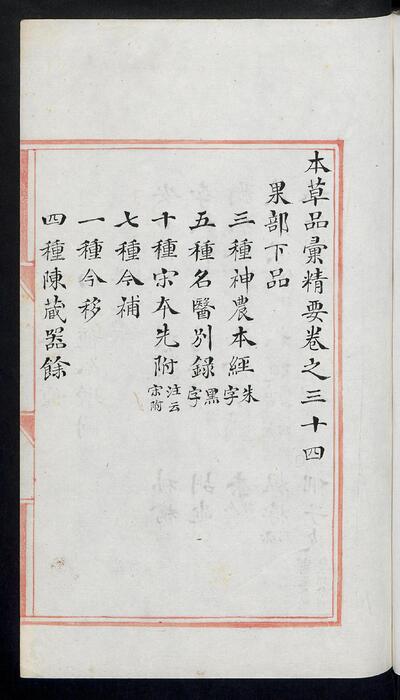 本草品彙精要卷之三十四
果部下品
三種神農本經朱字
五種名醫別録黑字
十種宋本先附注云宋附
七種今補
一種今移
四種陳藏器餘